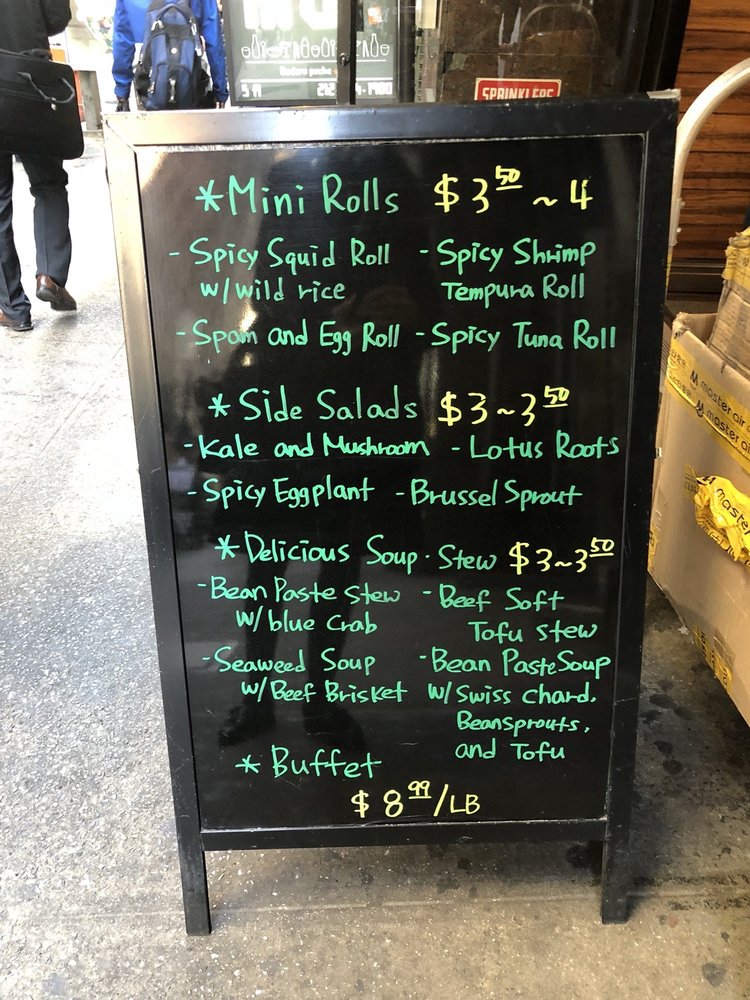 SPRINKLER
*Mini Rolls $3.50 ~ 4
- Spicy Squid Roll w/ wild rice
- Spicy Shrimp Tempura Roll
- Spam and Egg Roll - Spicy Tuna Roll
* Side Salads $3 ~ 3.50
- Kale and Mushroom - Lotus Roots
- Spicy Eggplant - Brussel Sprout
* Delicious Soup · Stew $3 ~ 3.50
- Bean Paste Stew w/ blue crab
- Beef Soft Tofu stew
- Seaweed Soup w/ Beef Brisket
- Bean Paste Soup w/ Swiss chard, Beansprouts, and Tofu
* Buffet
$8.99/LB
master air
master